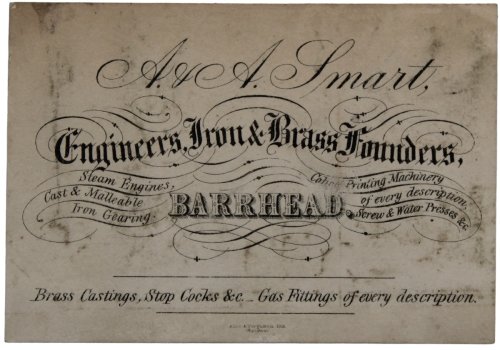 A. & A. Smart,
Engineers, Iron & Brass Founders,
Steam Engines,
Cast & Malleable
Iron Gearing.
Calico Printing Machinery
of every description.
Screw & Water Presses &c
BARRHEAD.
Brass Castings, Stop Cocks &c. Gas Fittings of every description.